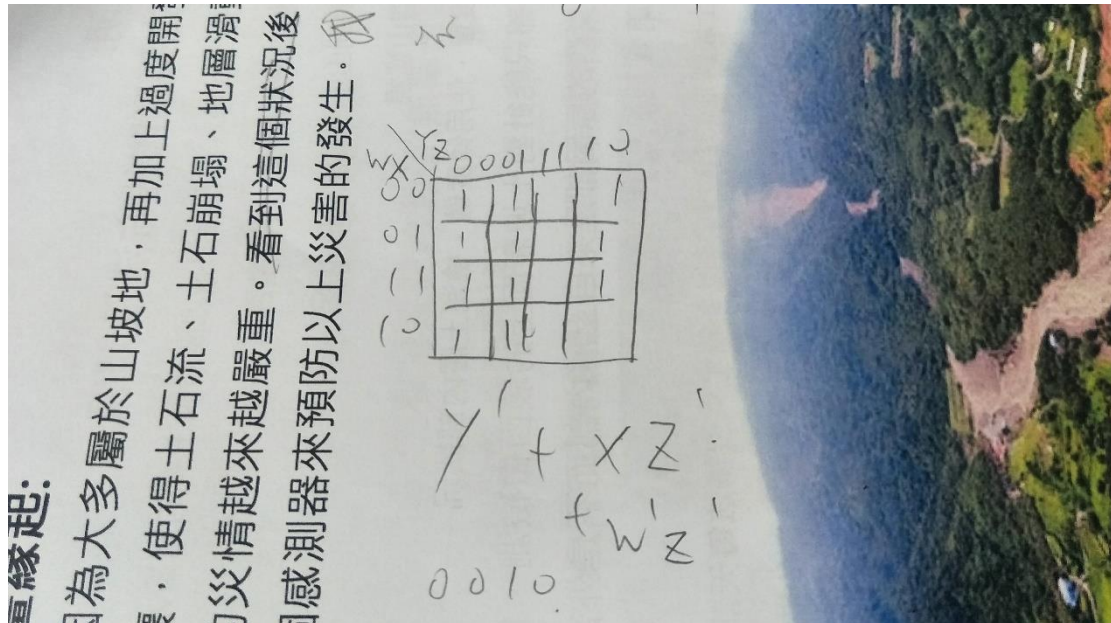 置緣起:
因為大多屬於山坡地,再加上過度開
壤,使得土石流、土石崩塌、地層滑
災情越來越嚴重。看到這個狀況後
感測器來預防以上災害的發生.我
WX/YZ 00 01 11 10
00 1 1 1
01 1 1 1
11 1 1 1
10 1 1
Y' + XZ'
+ W'Z'
0010